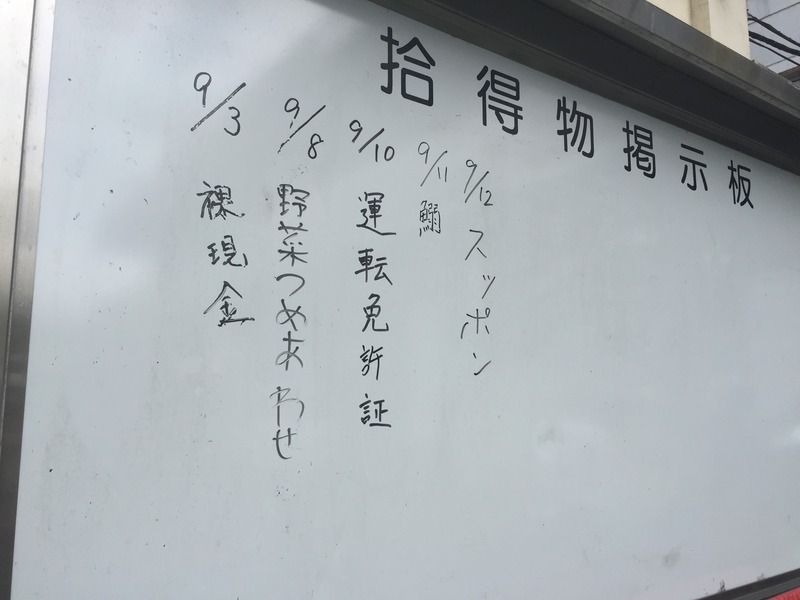 拾得物掲示板
9/3 裸現金
9/8 野菜つめあわせ
9/10 運転免許証
9/11 鰯
9/12 スッポン